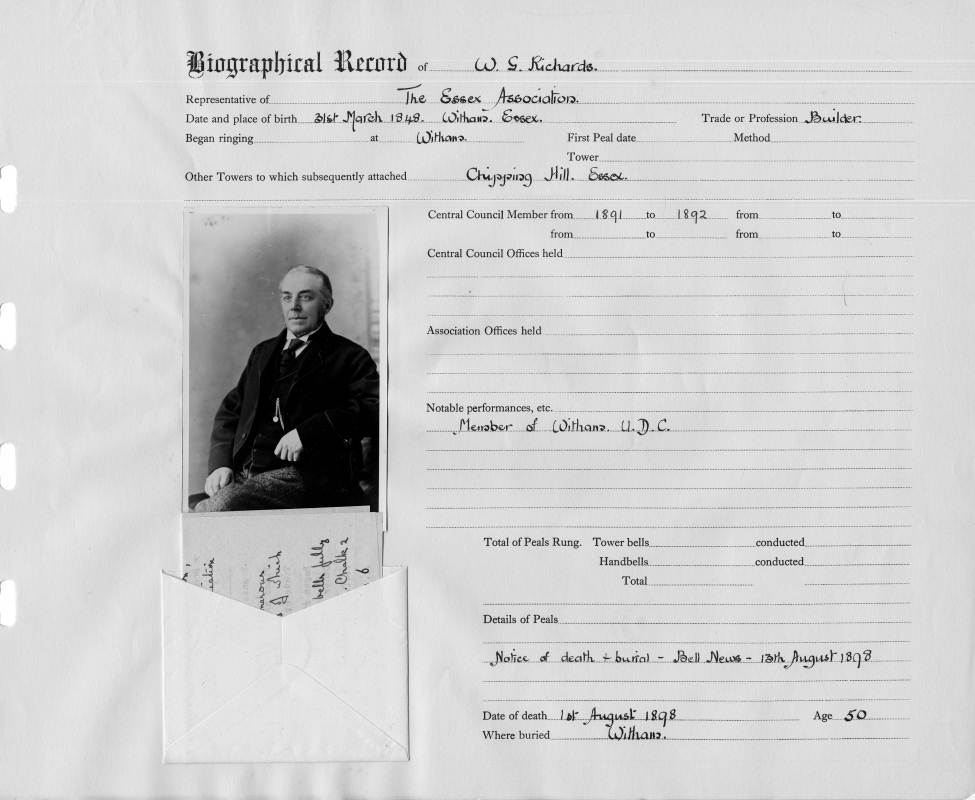 Biographical Record of W. G. Richards.
Representative of The Essex Association.
Date and place of birth 31st March 1848. Witham. Essex. Trade or Profession Builder.
Began ringing at Witham. First Peal date Method
Tower
Other Towers to which subsequently attached Chipping Hill. Essex.
Central Council Member from 1891 to 1892 from to
from to from to
Central Council Offices held
Association Offices held
Notable performances, etc.
Member of Witham. U.D.C.
Total of Peals Rung. Tower bells conducted
Handbells conducted
Total
Details of Peals
Notice of death + burial - Bell News - 13th August 1898
Date of death 1st August 1898 Age 50
Where buried Witham.
of which
bells fully
Chalk 2
6